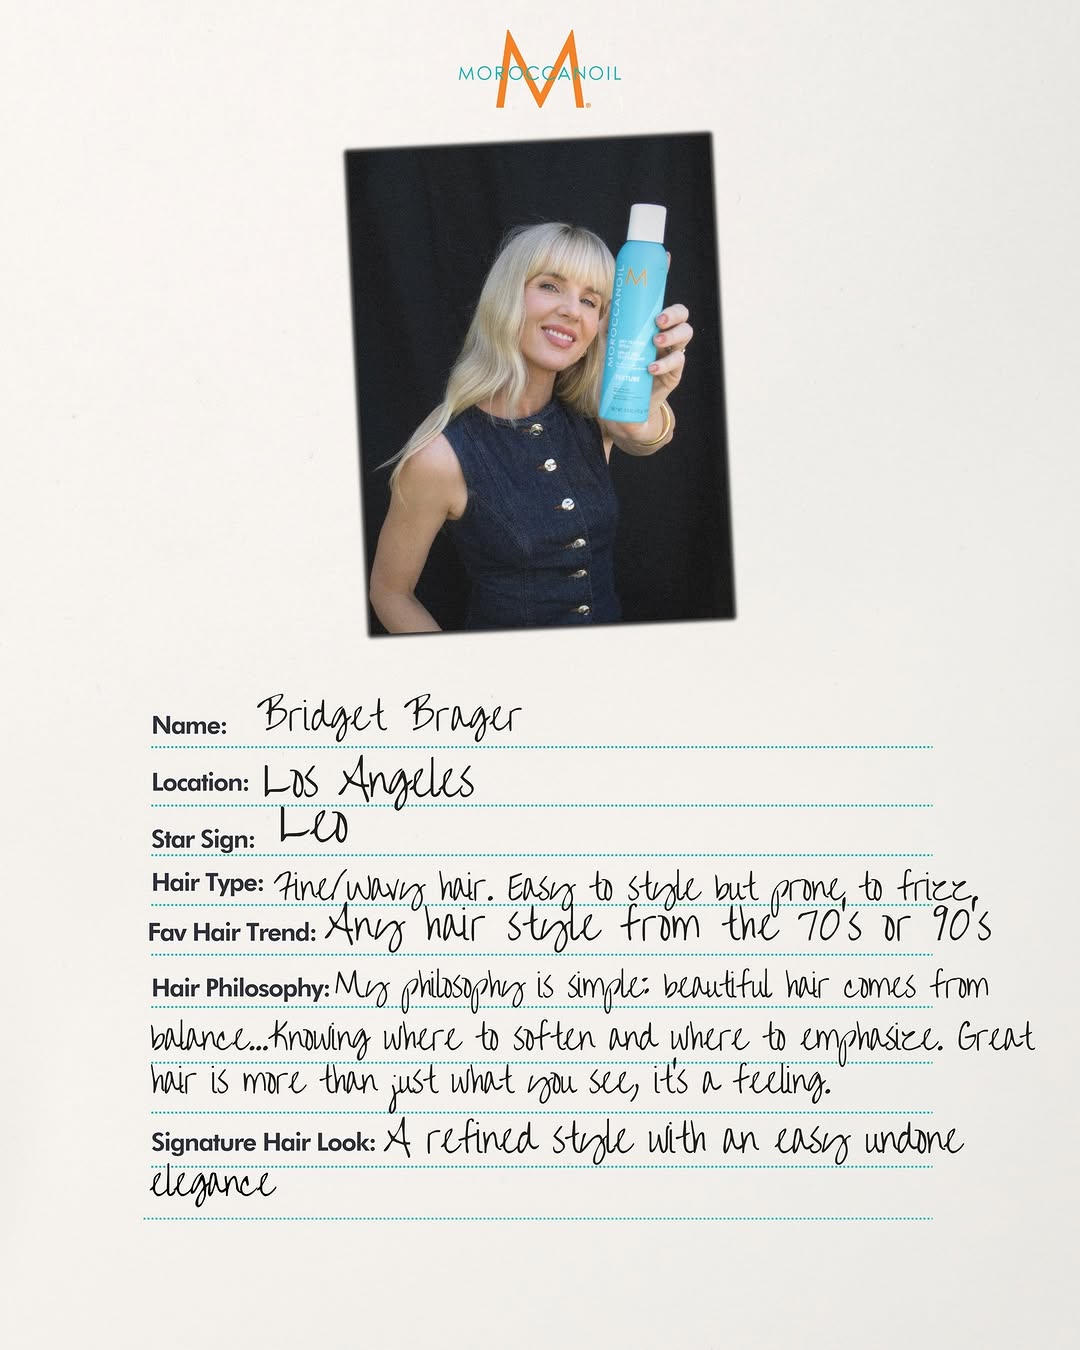 MOROCCANOIL
M
MOROCCANOIL
M
Name: Bridget Brager
Location: Los Angeles
Star Sign: Leo
Hair Type: Fine/wavy hair. Easy to style but prone to frizz.
Fav Hair Trend: Any hair style from the 70's or 90's
Hair Philosophy: My philosophy is simple: beautiful hair comes from
balance...Knowing where to soften and where to emphasize. Great
hair is more than just what you see, it's a feeling.
Signature Hair Look: A refined style with an easy undone
elegance